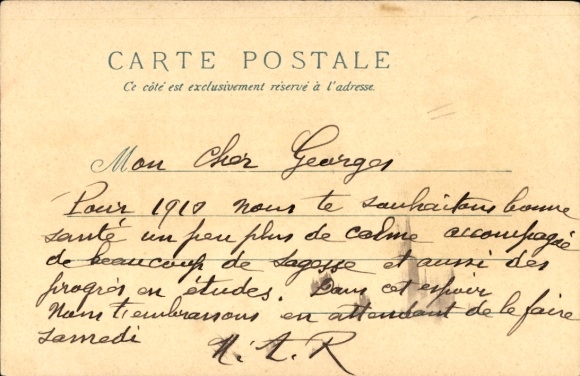 CARTE POSTALE
Ce côté est exclusivement réservé à l'adresse.
Mon cher Georges
Pour 1910 nous te souhaitons bonne
santé un peu plus de calme accompagné
de beaucoup de sagesse et aussi des
progrès en études. Dans cet espoir
Nous t'embrassons en attendant de le faire
samedi
A. R